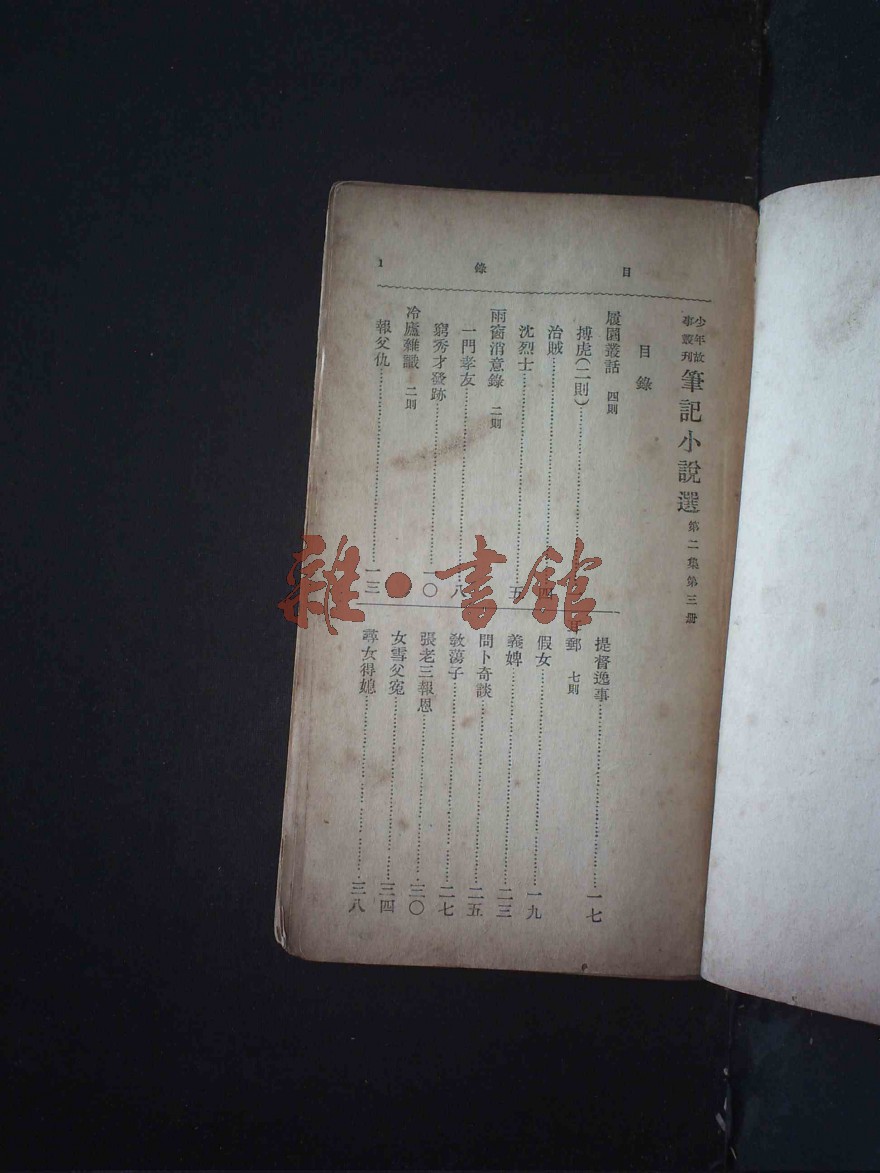 少年故事叢刊 筆記小說選 第二集第三册
目錄
1
目錄
履園叢話 四則
搏虎(二則)
治賊……四
沈烈士……五
雨窗消意錄 二則
一門孝友……八
窮秀才發跡……一〇
冷廬雜識 二則
報父仇……一三
提督逸事……一七
郵 七則
假女……一九
義婢……二三
問卜奇談……二五
教蕩子……二七
張老三報恩……三〇
女雪父冤……三四
尋女得媳……三八
雜·書館